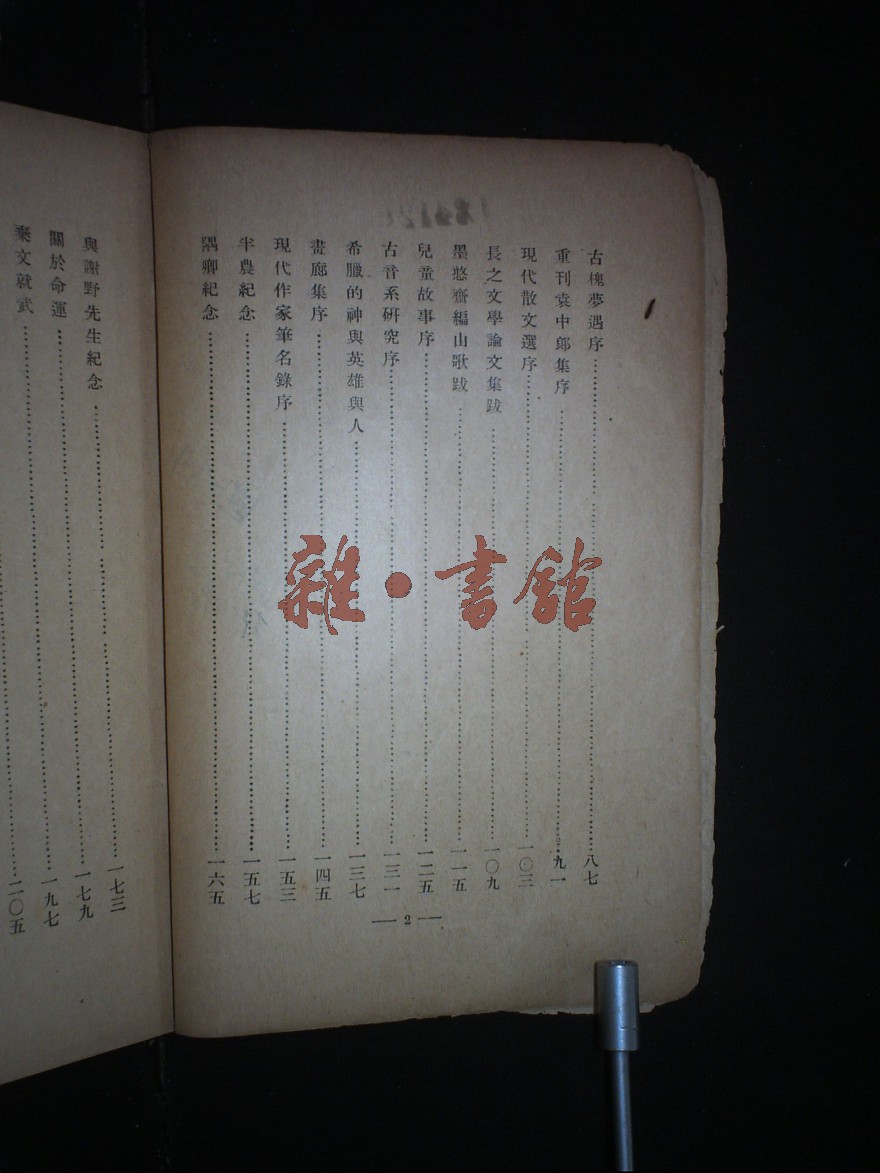 古槐夢遇序……八七
重刊袁中郎集序……九一
現代散文選序……一〇三
長之文學論文集跋……一〇九
墨憨齋編山歌跋……一一五
兒童故事序……一二五
古音系研究序……一三一
希臘的神與英雄與人……一三七
畫廊集序……一四五
現代作家筆名錄序……一五三
半農紀念……一五七
隅卿紀念……一六五
— 2 —
與謝野先生紀念……一七三
關於命運……一七九
棄文就武……一九七
二〇五
雜·書館